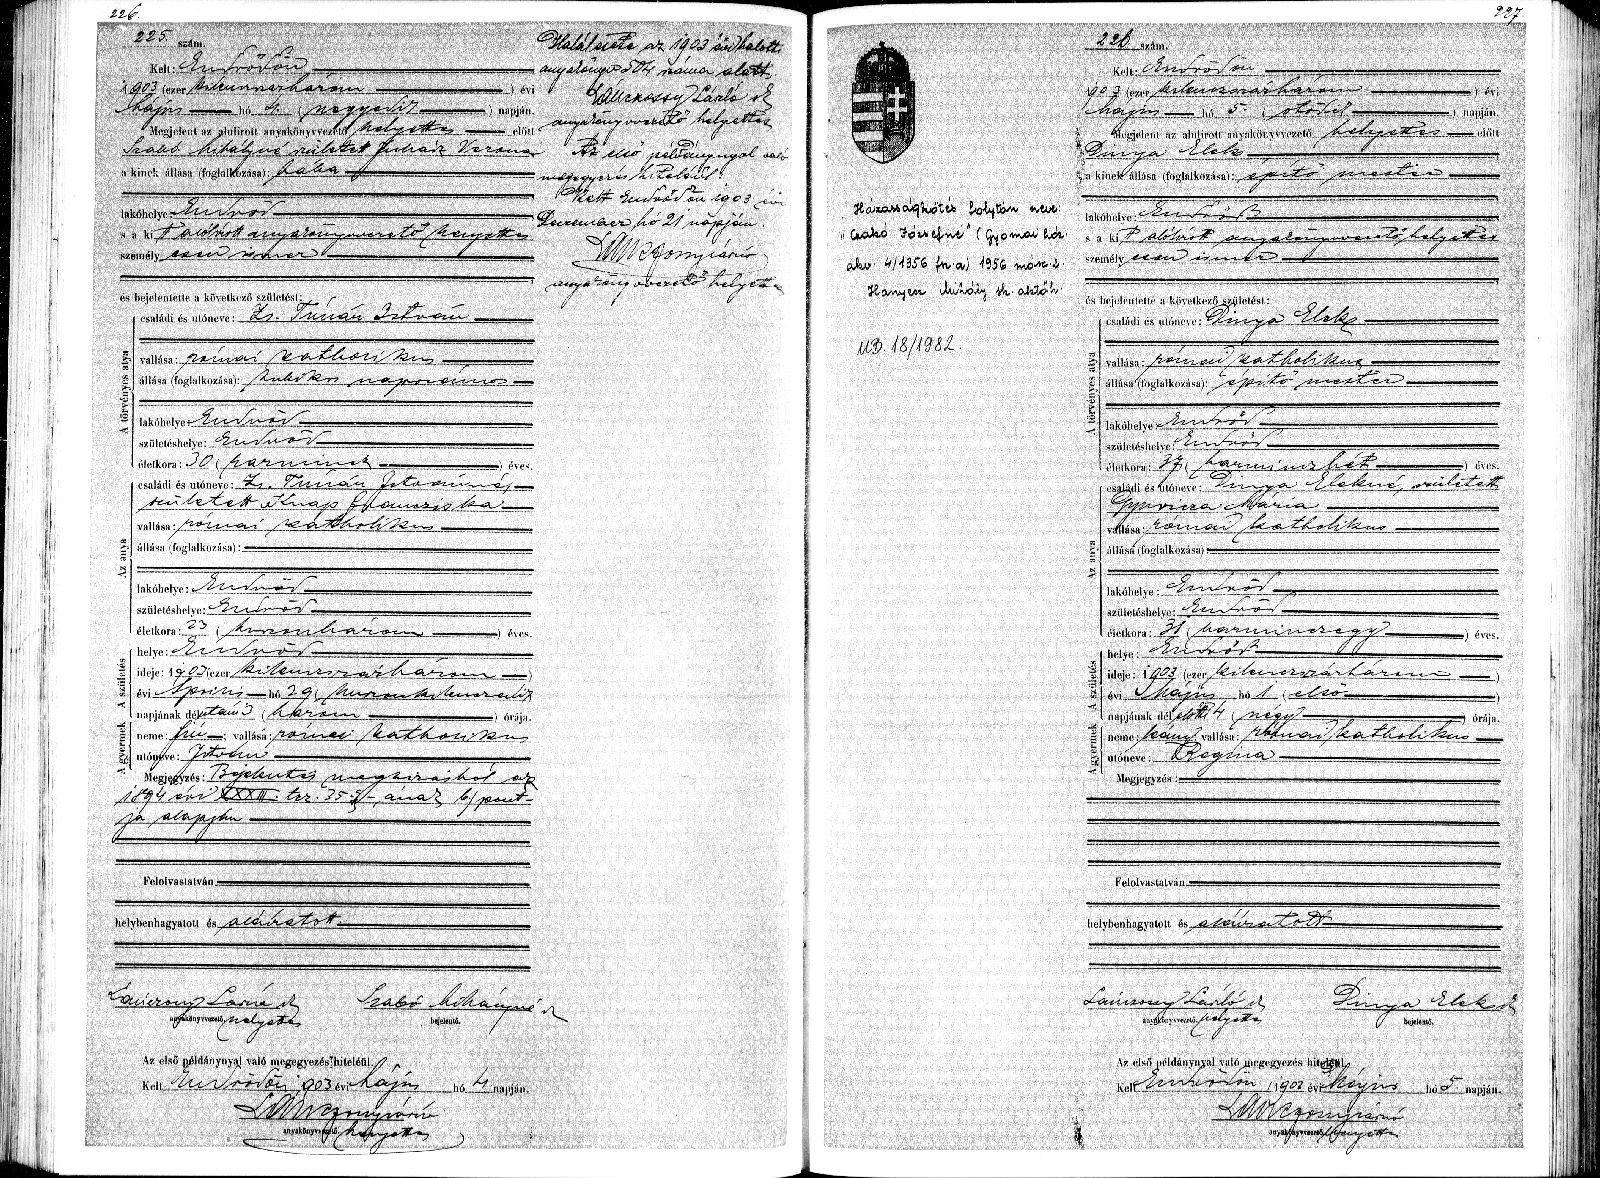 226.
225. szám.
Kelt: Endrődön
1903 (ezer kilenczszázhárom) évi
Május hó 4. (negyedik) napján.
Megjelent az alulirott anyakönyvvezető helyettes előtt
Szabó Mihályné született Juhász Verona
a kinek állása (foglalkozása): bába
lakóhelye Endrőd
s a kit alólirott anyakönyvvezető helyettes
személyesen ismer
és bejelentette a következő születést:
A törvényes atya
családi és utóneve: Zs. Tímár István
vallása: római katholikus
állása (foglalkozása): kubikos napszámos
lakóhelye Endrőd
születéshelye: Endrőd
életkora: 30 (harmincz) éves.
Az anya
családi és utóneve: Zs. Tímár Istvánné,
született Knap Franciska
vallása: római katholikus
állása (foglalkozása):
lakóhelye: Endrőd
születéshelye: Endrőd
életkora: 23 (huszonhárom) éves.
A születés
helye: Endrőd
ideje: 1903 (ezer kilenczszázhárom)
évi Április hó 29 (huszonkilenczedik
napjának délutáni 3 (három) órája.
A gyermek
neme: fiú; vallása: római katholikus
utóneve: István
Megjegyzés: Bejelentés meghízásból az
1894 évi XXXIII. tcz. 35. §-ának b) pont-
ja alapján
Felolvastatván
helybenhagyatott és aláíratott
Lánczossy László sk Szabó Mihályné sk
anyakönyvvezető helyettes bejelentő.
Az első példánynyal való megegyezés hiteléül.
Kelt Endrődön, 1903 évi Május hó 4 napján.
anyakönyvvezető helyettes
Halál esete az 1903 évi halott
anyakönyv 504 száma alatt
Lánczossy László sk
anyakönyvvezető helyettes
Az első példánynyal való
megegyezés hiteléül.
Kelt Endrődön 1903 évi
Deczember hó 21 napján.
anyakönyvvezető helyettes
227
226 szám.
Kelt: Endrődön
1903 (ezer kilenczszázhárom) évi
Május hó 5. (ötödik) napján.
Megjelent az alulirott anyakönyvvezető helyettes előtt
Dinya Elek
a kinek állása (foglalkozása): építő mester
lakóhelye: Endrőd
s a kit alólirott anyakönyvvezető helyettes
személyesen ismer
és bejelentette a következő születést:
A törvényes atya
családi és utóneve: Dinya Elek
vallása: római katholikus
állása (foglalkozása): építő mester
lakóhelye: Endrőd
születéshelye: Endrőd
életkora: 37 (harminczhét) éves.
Az anya
családi és utóneve: Dinya Elekné, született
Gyuricza Mária
vallása: római katholikus
állása (foglalkozása)
lakóhelye: Endrőd
születéshelye: Endrőd
életkora: 31 (harminczegy) éves.
A születés
helye: Endrőd
ideje: 1903 (ezer kilenczszázhárom)
évi Május hó 1 (első
napjának délelőtti 4 (négy) órája.
A gyermek
neme: leány; vallása: római katholikus
utóneve: Regina
Megjegyzés:
Felolvastatván
helybenhagyatott és aláíratott
Lánczossy László sk Dinya Elek sk
anyakönyvvezető helyettes bejelentő.
Az első példánynyal való megegyezés hiteléül.
Kelt Endrődön, 1903 évi Május hó 5 napján.
anyakönyvvezető helyettes
Házasságkötés folytán neve
"Csakó Józsefné" (Gyomai ház.
akv. 4/1956 fsz a) 1956 márc 2
Hanyecz Mihály sk. aktőh.
UB. 18/1982.